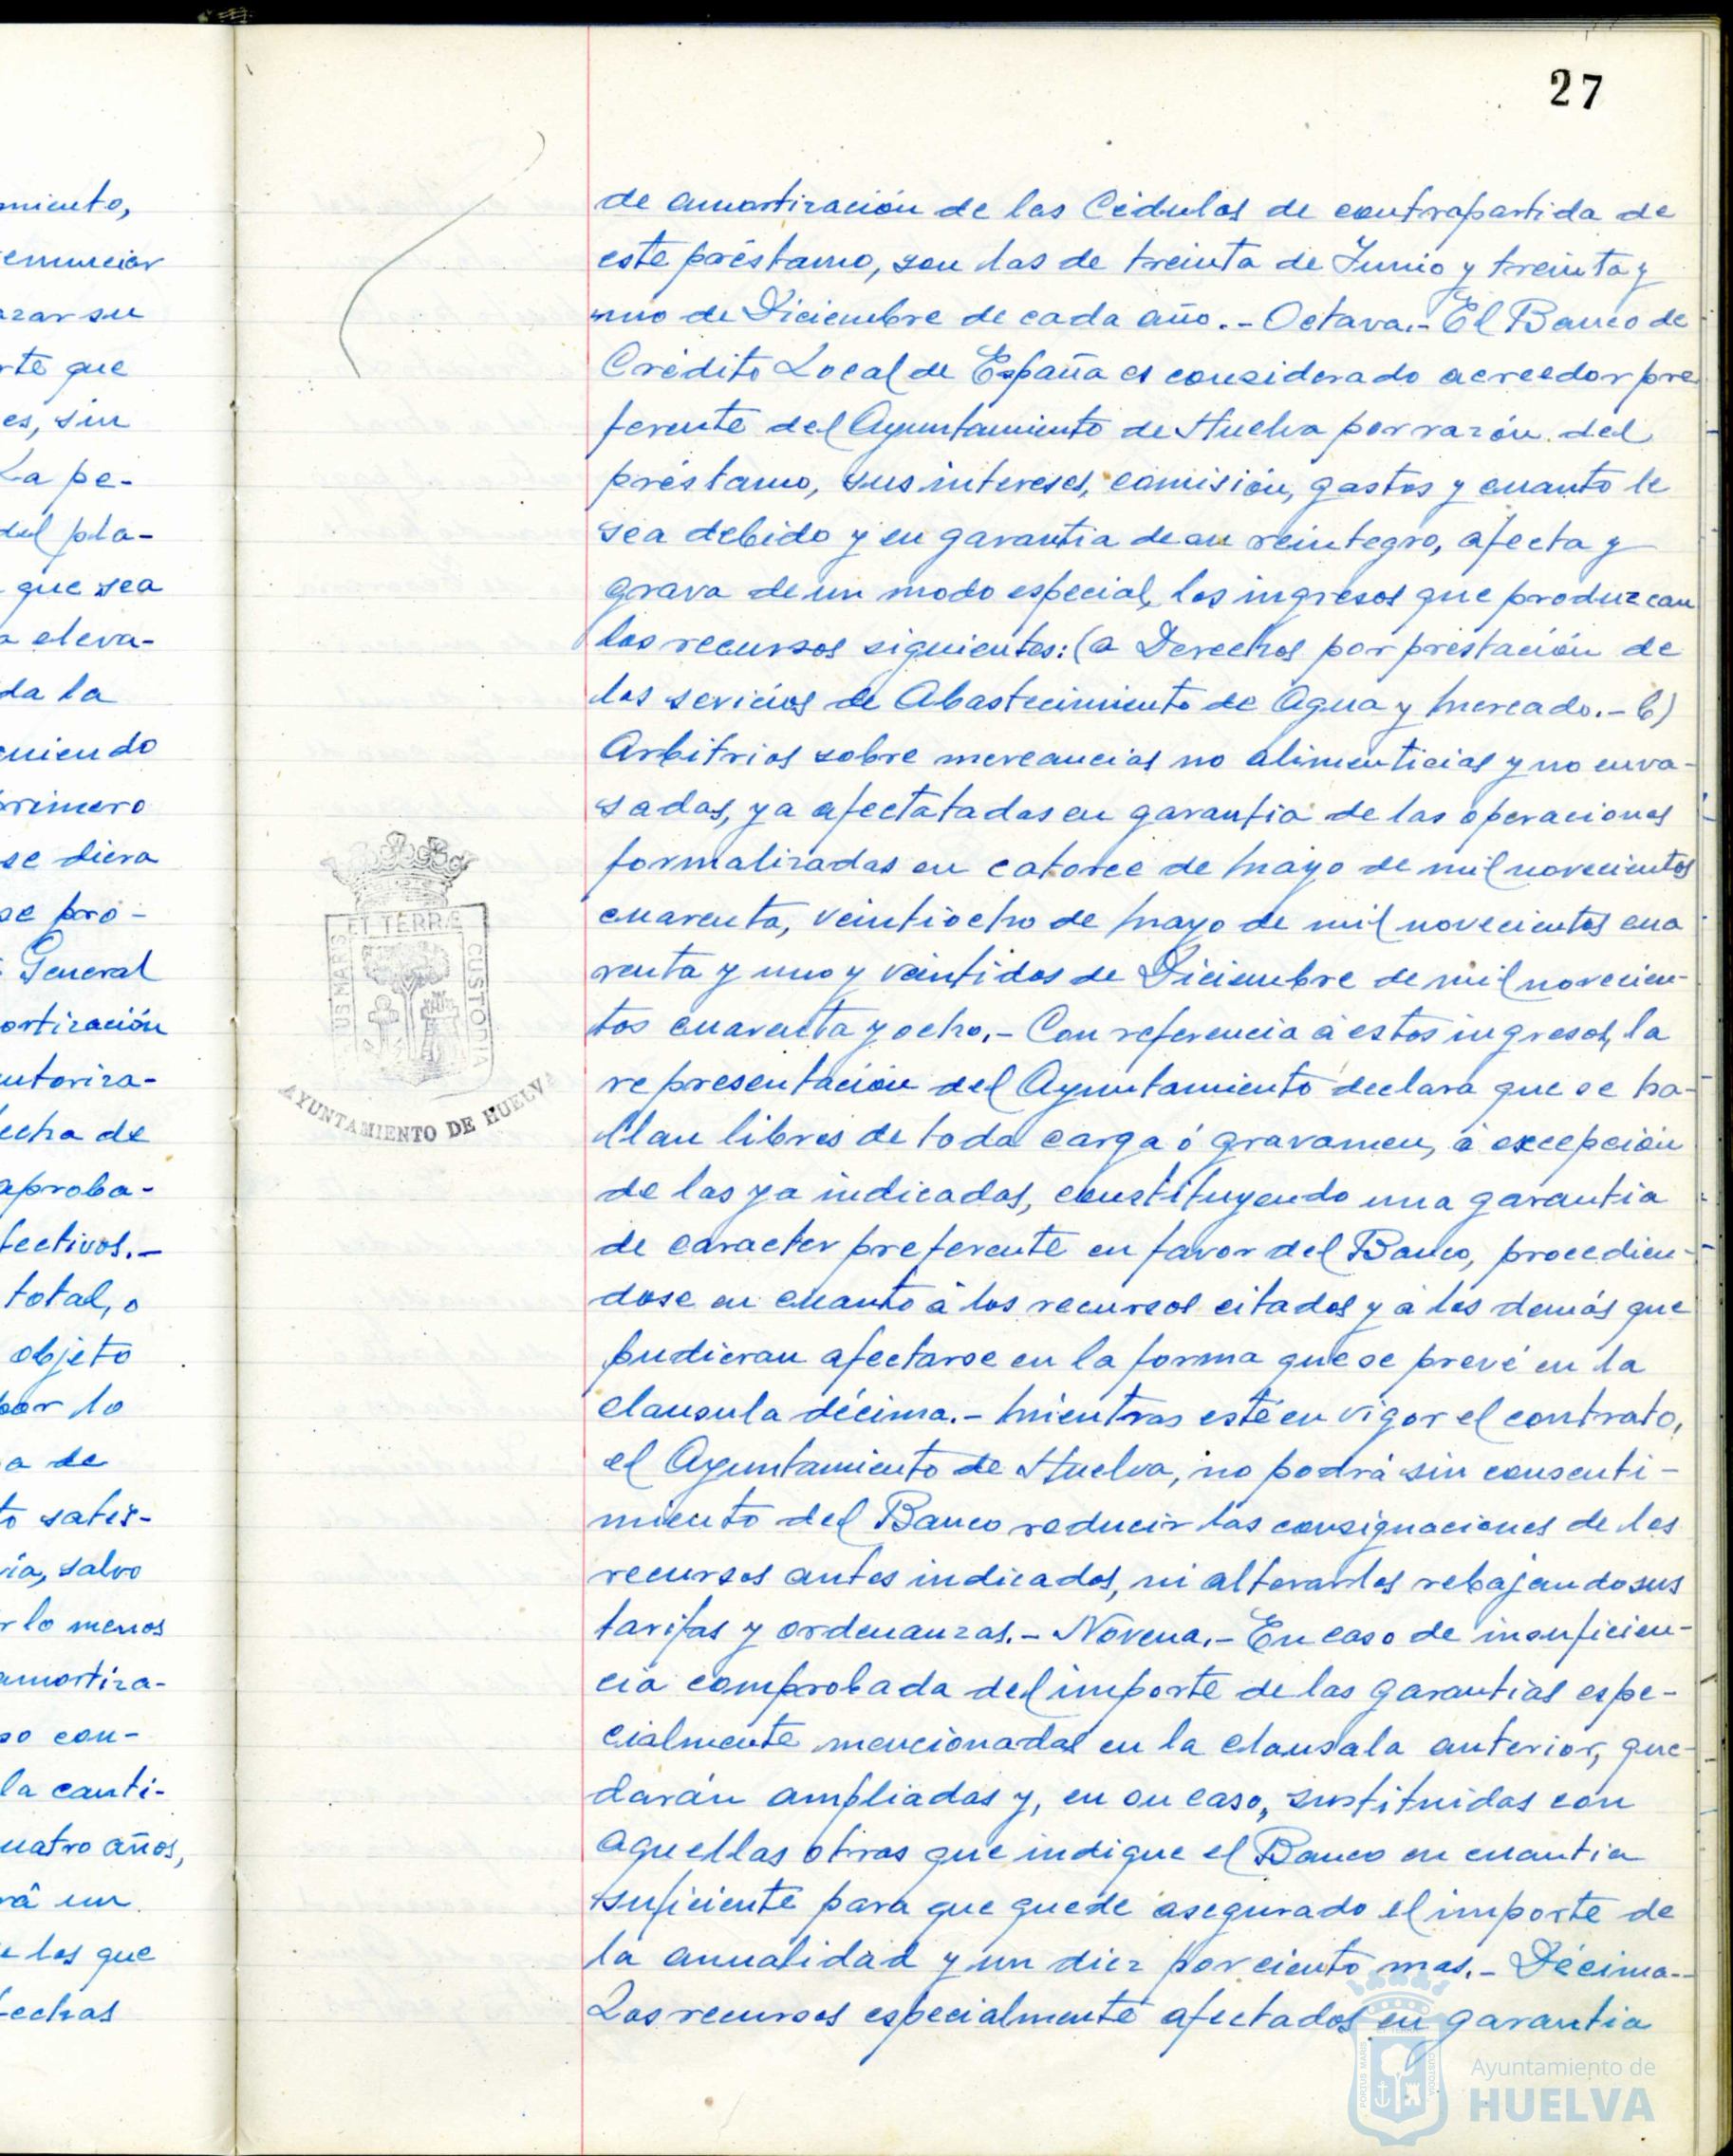 27
miento,
enunciar
azar su
rte que
es, sin
La pe-
del pla-
que sea
a eleva-
da la
eniendo
primero
se diera
se pro-
General
ortización
utoriza-
echa de
aproba-
fectivos.-
total, o
objeto
por lo
a de
to satis-
ía, salvo
r lo menos
amortiza-
so con-
la canti-
uatro años,
rá un
e los que
fechas
de amortización de las Cédulas de contrapartida de
este préstamo, son las de treinta de Junio y treinta y
uno de Diciembre de cada año.- Octava.- El Banco de
Crédito Local de España es considerado acreedor pre
ferente del Ayuntamiento de Huelva por razón del
préstamo, sus intereses, comisión, gastos y cuanto le
sea debido y en garantia de su reintegro, afecta y
grava de un modo especial, los ingresos que produzcan
los recursos siguientes: (a Derechos por prestación de
los sevicios de Abastecimiento de Agua y Mercado.- b)
Arbitrios sobre mercancias no alimenticias y no enva-
sadas, ya afectatadas en garantia de las operaciones
formalizadas en catorce de Mayo de mil novecientos
cuarenta, veintiocho de Mayo de mil novecientos cua
renta y uno y veintidos de Diciembre de mil novecien-
tos cuarenta y ocho.- Con referencia á estos ingresos, la
representación del Ayuntamiento declara que se ha-
llan libres de toda carga ó gravamen, á excepción
de las ya indicadas, constituyendo una garantia
de caracter preferente en favor del Banco, procedien-
dose en cuanto á los recursos citados y á los demás que
pudieran afectarse en la forma que se prevé en la
clausula décima.- Mientras esté en vigor el contrato,
el Ayuntamiento de Huelva, no podrá sin consenti-
miento del Banco reducir las consignaciones de los
recursos antes indicados, ni alterarlos rebajando sus
tarifas y ordenanzas.- Novena.- En caso de insuficien-
cia comprobada del importe de las garantias espe-
cialmente mencionadas en la clausala anterior, que-
darán ampliadas y, en su caso, sustituidas con
aquellas otras que indique el Banco en cuantia
suficiente para que quede asegurado el importe de
la anualidad y un diez por ciento mas.- Décima.-
Los recursos especialmente afectados en garantia
ET TERRÆ
US MARIS
CUSTODIA
AYUNTAMIENTO DE HUELVA
PORTUS MARIS
CUSTODIA
Ayuntamiento de
HUELVA